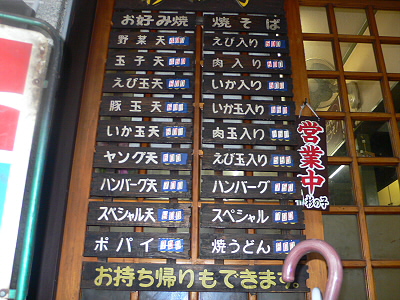 お好み焼
野菜天
玉子天
えび玉天
豚玉天
いか玉天
ヤング天
ハンバーグ天
スペシャル天
ポパイ
焼そば
えび入り
肉入り
いか入り
いか玉入り
肉玉入り
えび玉入り
ハンバーグ
スペシャル
焼うどん
お持ち帰りもできます。
営業中
杉の子